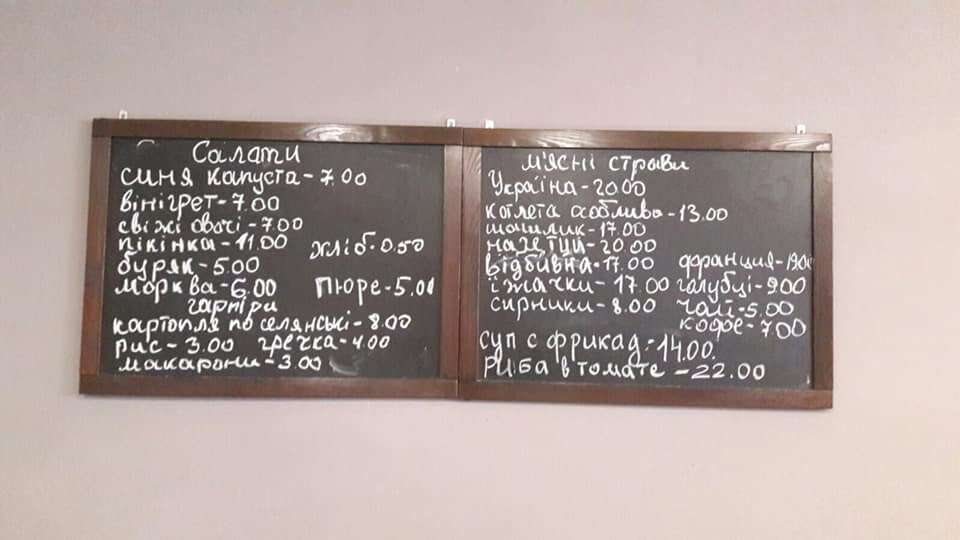 Салати
синя капуста - 7.00
вінігрет - 7.00
свіжі овочі - 7.00
пікінка - 11.00
хліб - 0.50
буряк - 5.00
морква - 6.00
пюре - 5.00
гарніри
картопля по селянські - 8.00
рис - 3.00 гречка - 4.00
макарони - 3.00
м'ясні страви
Україна - 20.00
котлета особливо - 13.00
шашлик - 17.00
нагетци - 20.00
відбивна - 17.00 франция - 19.00
їжачки - 17.00 голубці - 9.00
сирники - 8.00 чай - 5.00
кофе - 7.00
суп с фрикад. - 14.00.
РИБА в томате - 22.00